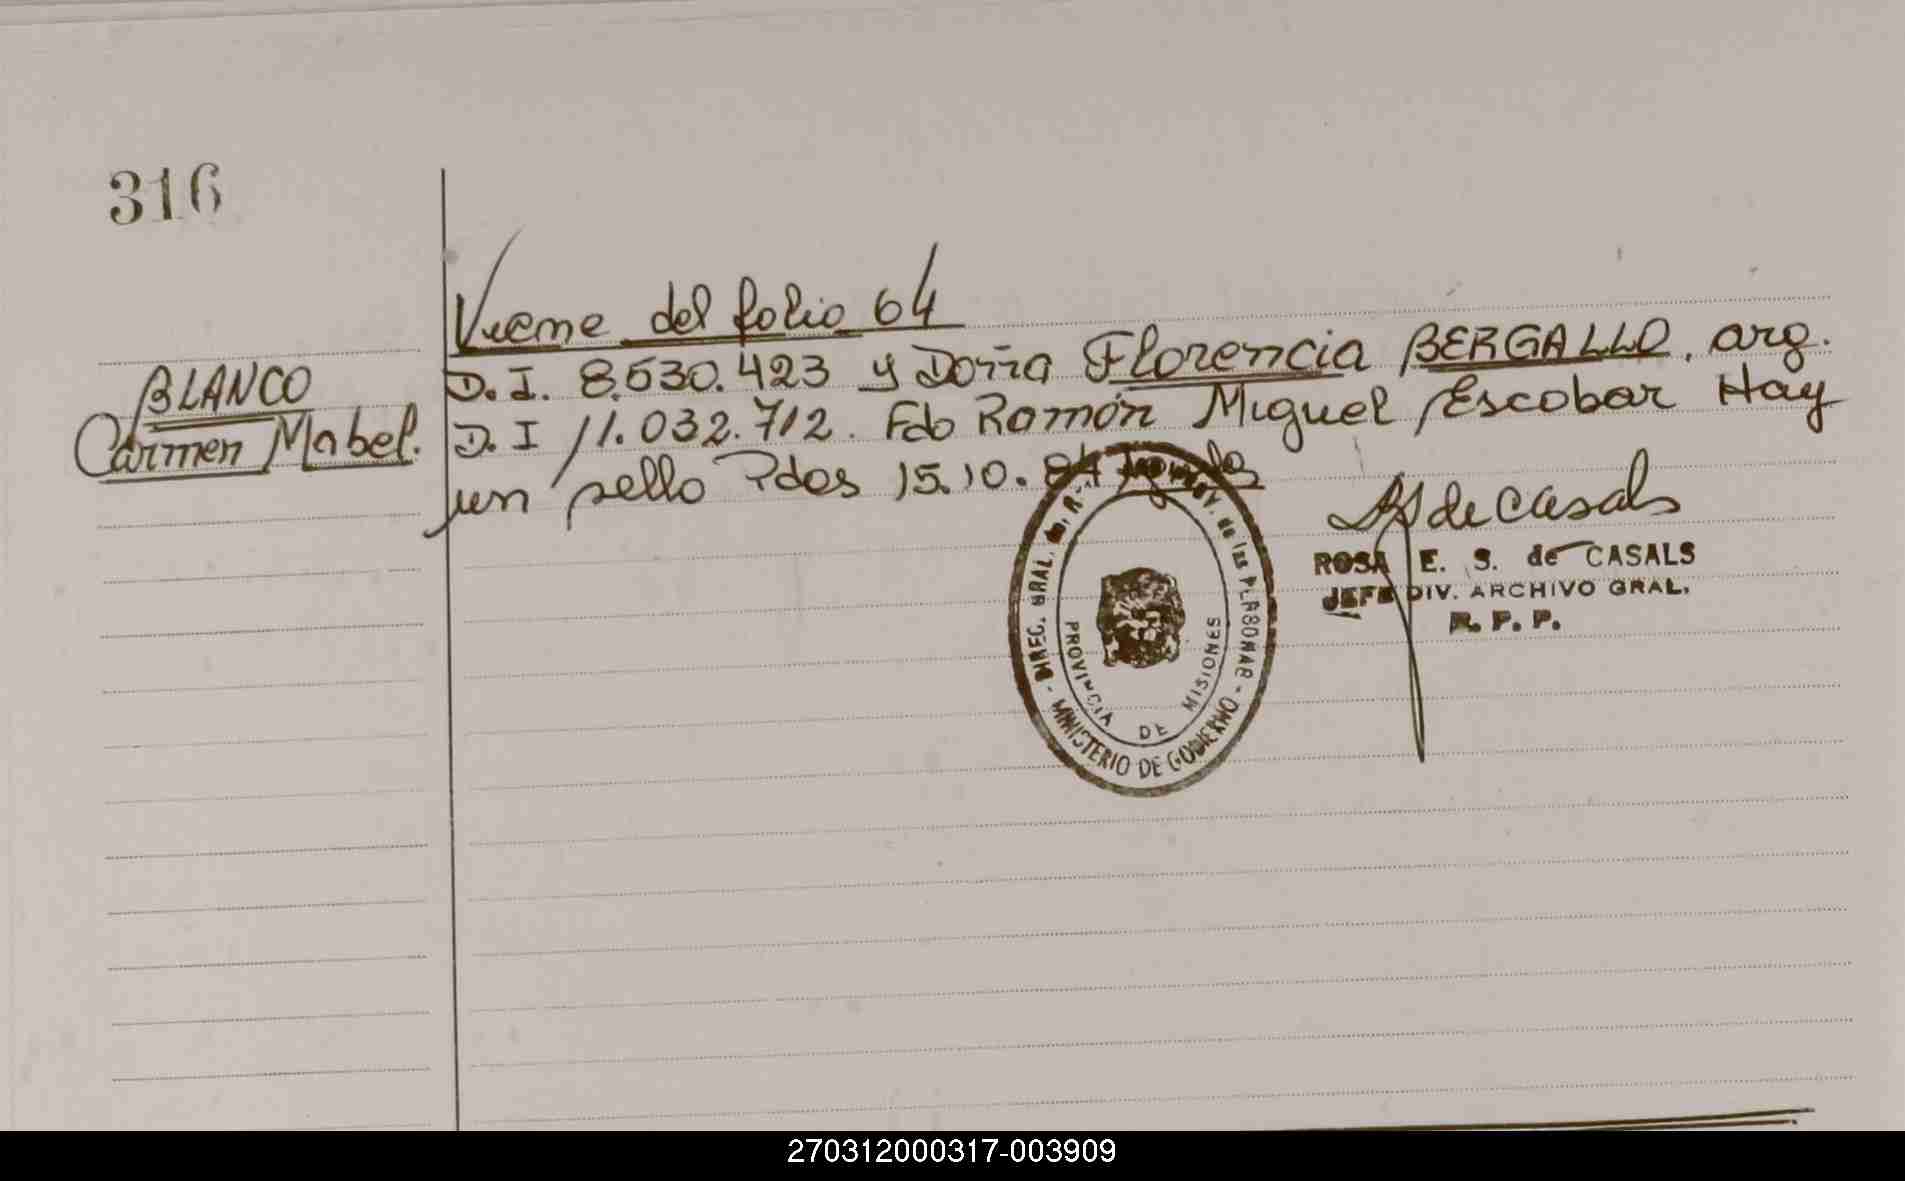 316
Viene del folio 64
BLANCO
Carmen Mabel.
D.I. 8.530.423 y Doña Florencia BERGALLO, arg.
D.I 11.032.712. Fdo Ramón Miguel Escobar Hay
un sello Pdas 15.10.84
RS de Casals
ROSA E. S. de CASALS
JEFE DIV. ARCHIVO GRAL.
R. P. P.
DIREC. GRAL. de las PERSONAS
PROVINCIA DE MISIONES
- MINISTERIO DE GOBIERNO -
270312000317-003909